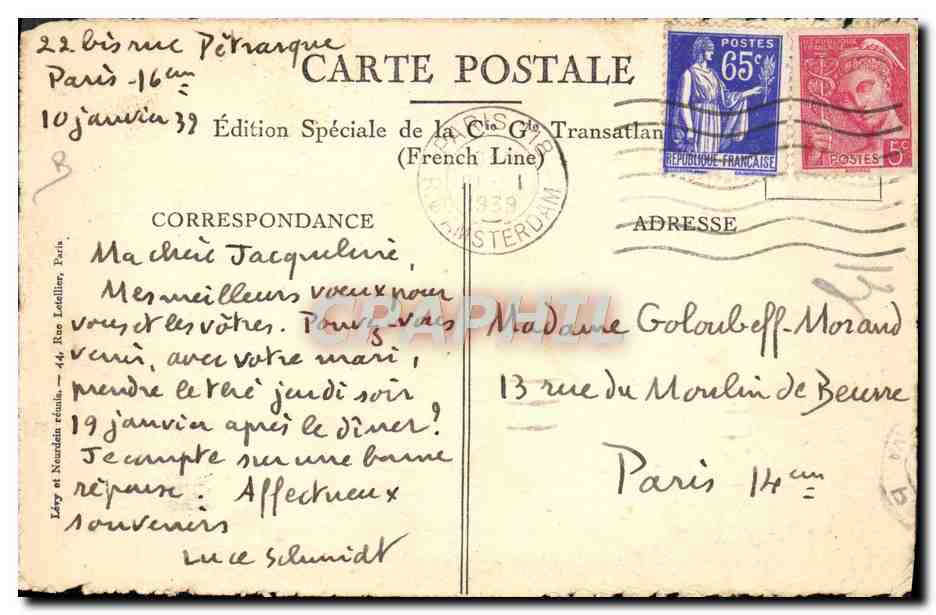 22 bis rue Pétrarque
Paris - 16em
10 janvier 39
CARTE POSTALE
Édition Spéciale de la Cie Gle Transatlan
(French Line)
POSTES
65c
RÉPUBLIQUE-FRANÇAISE
RÉPUBLIQUE
FRANÇAISE
POSTES
5c
PARIS 18
1939
R. AMSTERDAM
CORRESPONDANCE
ADRESSE
Ma chère Jacqueline,
Mes meilleurs voeux pour
vous et les vôtres. Pouvez-vous
venir, avec votre mari,
prendre le thé jeudi soir
19 janvier après le dîner?
Je compte sur une bonne
réponse. Affectueux
souvenirs
Luce Schmidt
Madame Goloubeff-Morand
13 rue du Moulin de Beurre
Paris 14em
Lévy et Neurdein réunis. — 44, Rue Letellier, Paris
B
CPAPHIL